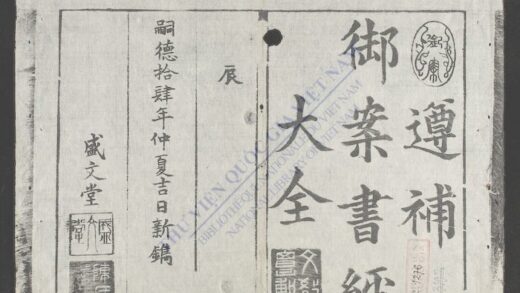 遵補
御案書經
大全
辰
嗣德拾肆年仲夏吉日新鐫
盛文堂
THƯ VIỆN QUỐC GIA VIỆT NAM
BIBLIOTHÈQUE NATIONALE DU VIETNAM
NATIONAL LIBRARY OF VIETNAM